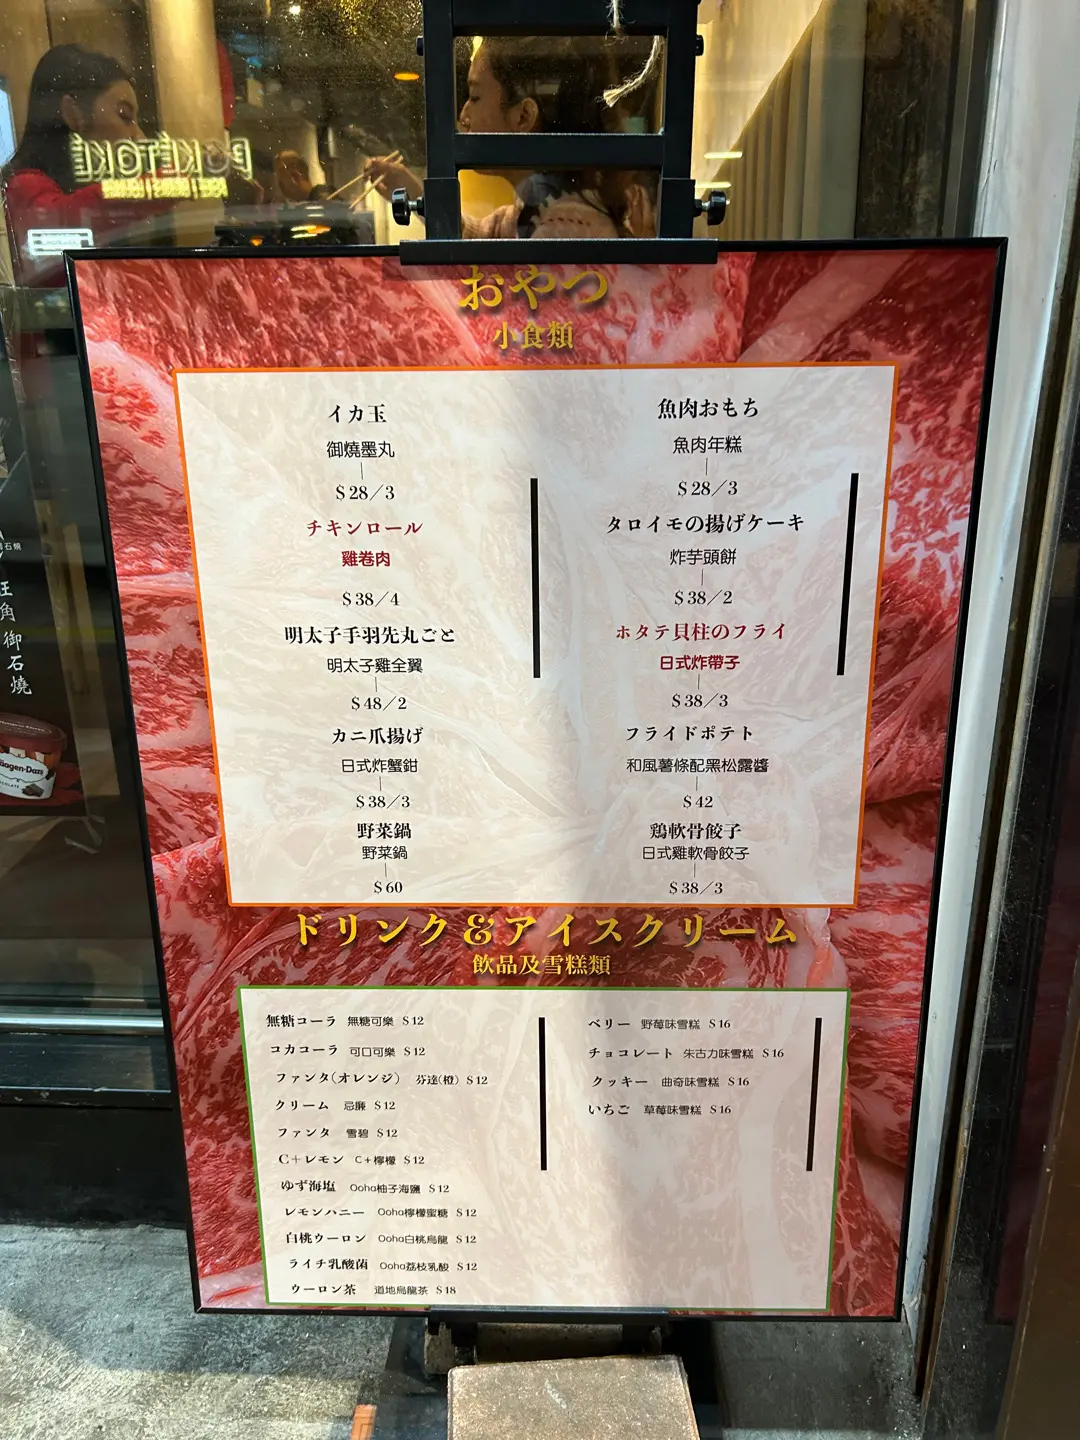 POKÉTOKÉ
おやつ
小食類
イカ玉
御燒墨丸
$28/3
チキンロール
雞卷肉
$38/4
明太子手羽先丸ごと
明太子雞全翼
$48/2
カニ爪揚げ
日式炸蟹鉗
$38/3
野菜鍋
野菜鍋
$60
魚肉おもち
魚肉年糕
$28/3
タロイモの揚げケーキ
炸芋頭餅
$38/2
ホタテ貝柱のフライ
日式炸帶子
$38/3
フライドポテト
和風薯條配黑松露醬
$42
鶏軟骨餃子
日式雞軟骨餃子
$38/3
ドリンク&アイスクリーム
飲品及雪糕類
無糖コーラ 無糖可樂 $12
コカコーラ 可口可樂 $12
ファンタ(オレンジ) 芬達(橙) $12
クリーム 忌廉 $12
ファンタ 雪碧 $12
C+レモン C+檸檬 $12
ゆず海塩 Ooha柚子海鹽 $12
レモンハニー Ooha檸檬蜜糖 $12
白桃ウーロン Ooha白桃烏龍 $12
ライチ乳酸菌 Ooha荔枝乳酸 $12
ウーロン茶 道地烏龍茶 $18
ベリー 野莓味雪糕 $16
チョコレート 朱古力味雪糕 $16
クッキー 曲奇味雪糕 $16
いちご 草莓味雪糕 $16
石燒
旺角御石燒
Häagen-Dazs